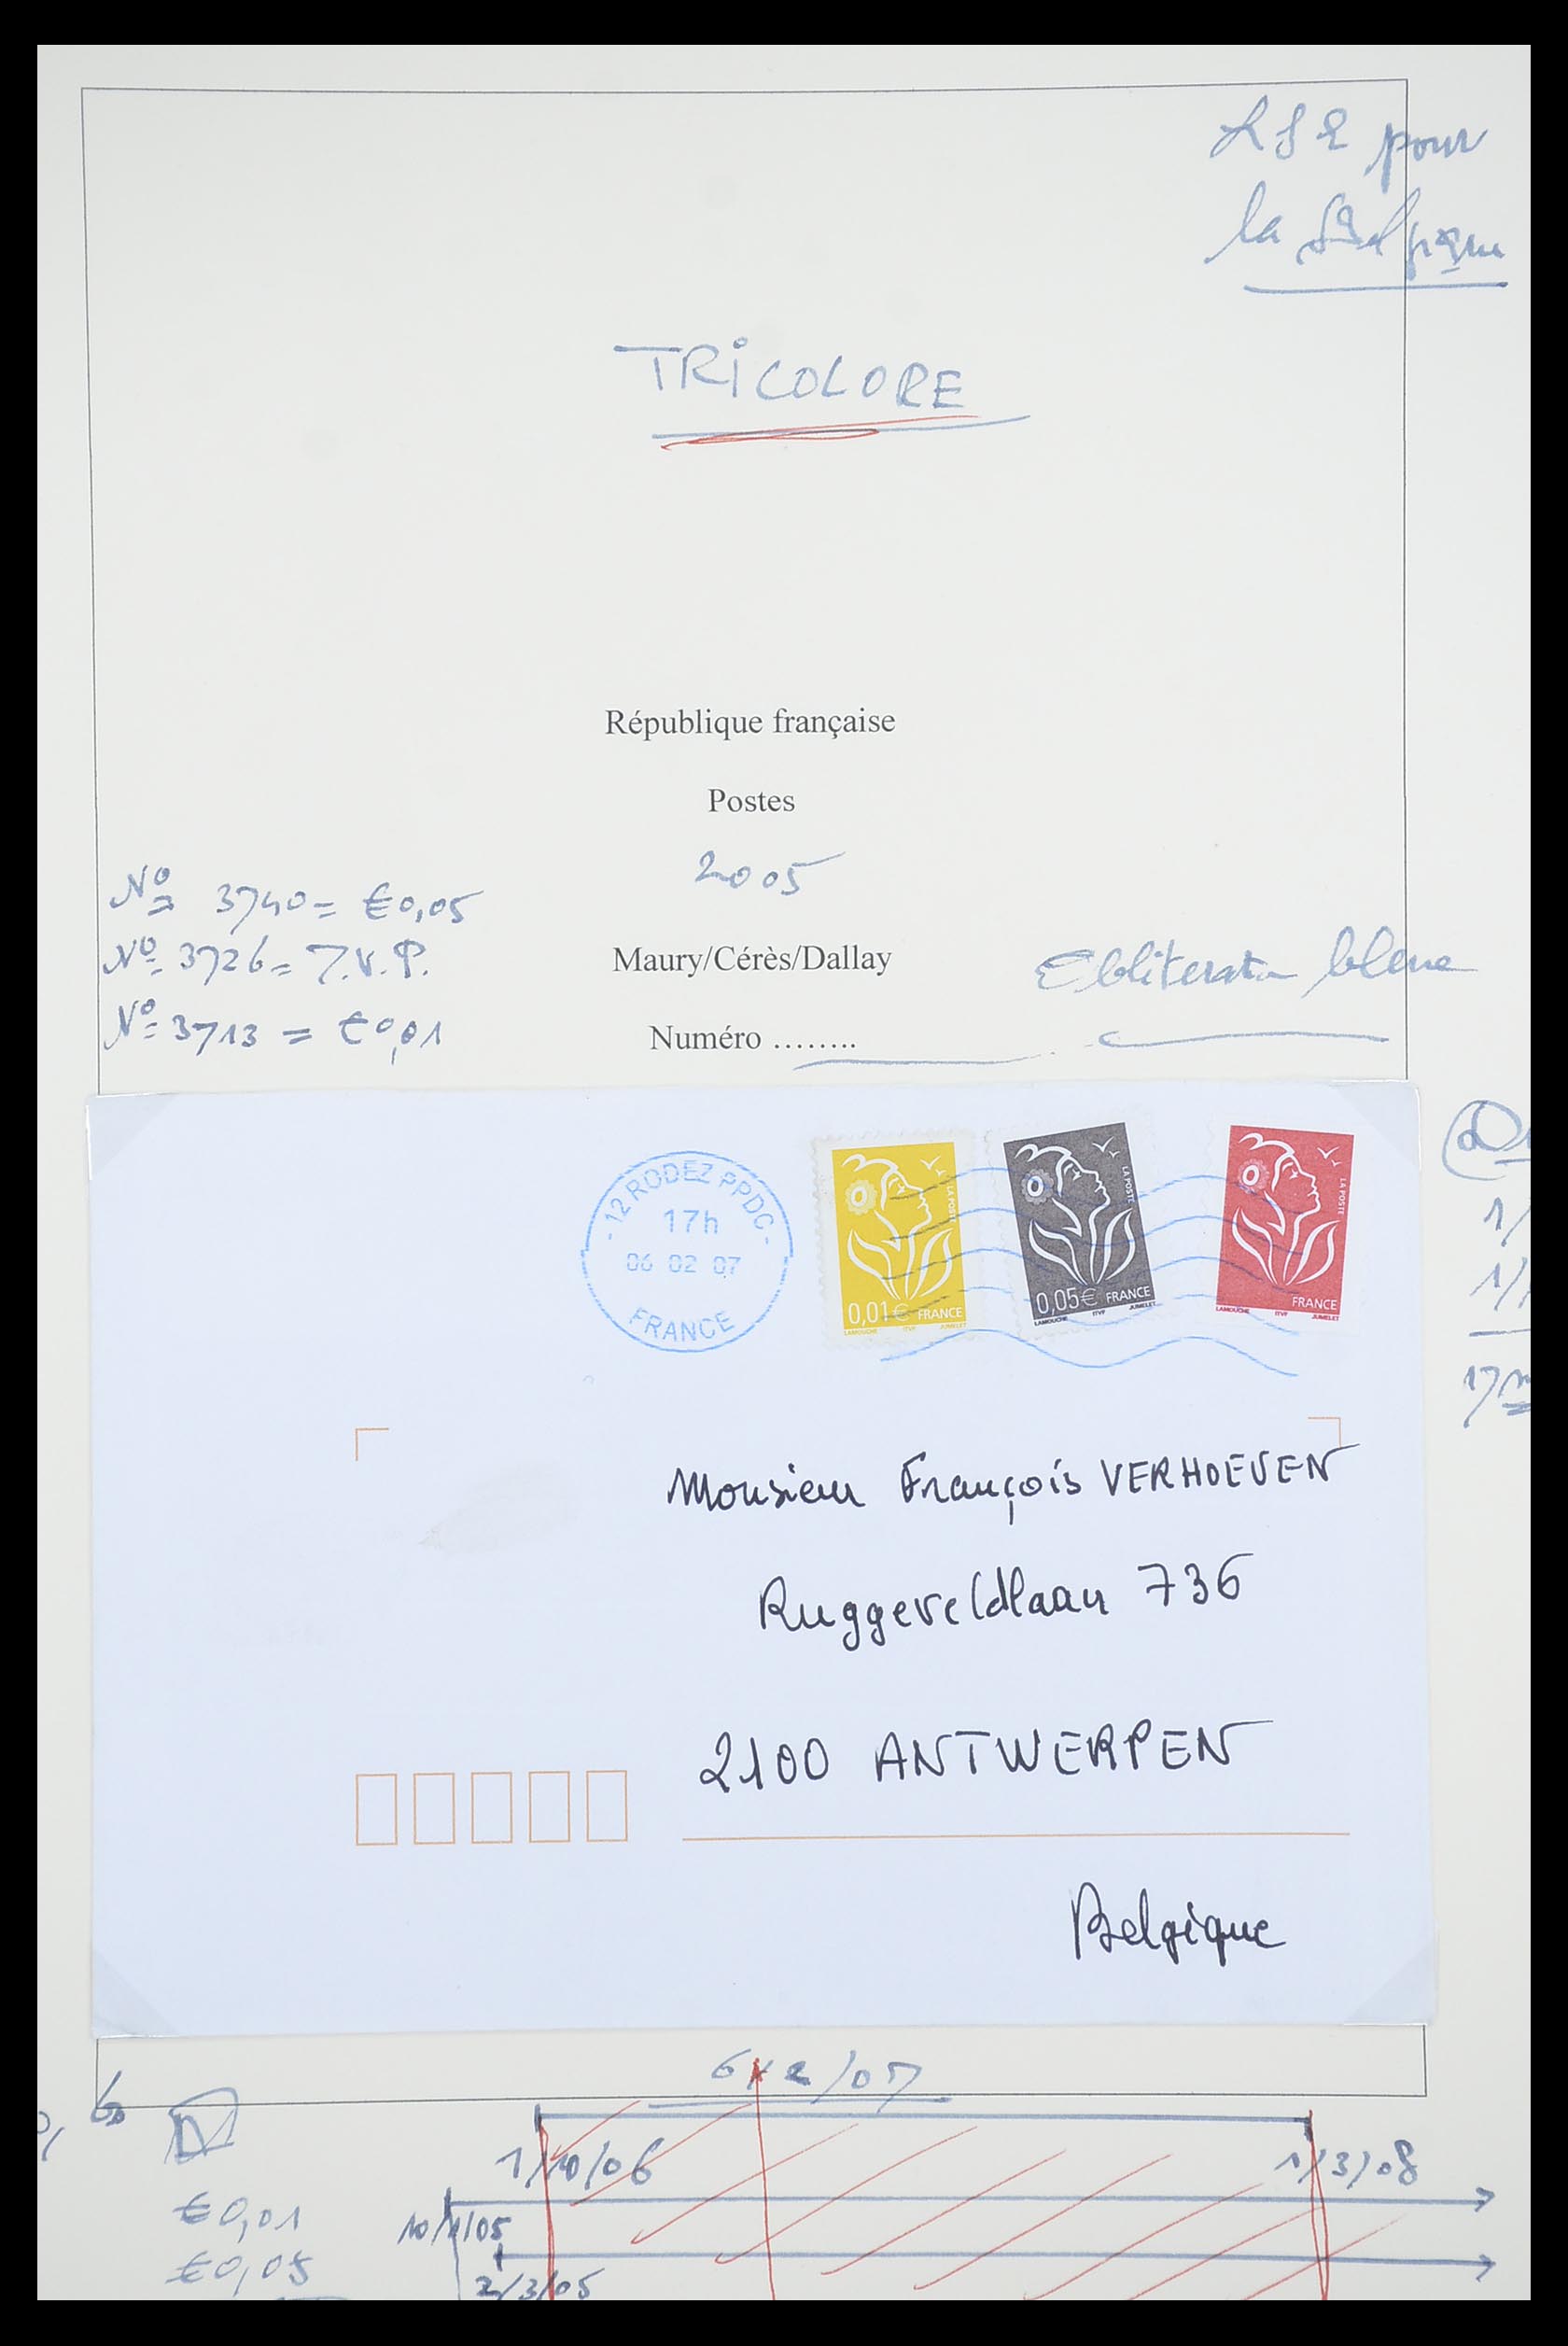 LSE pour
la Belgique
TRICOLORE
République française
Postes
2005
No 3740 = €0,05
No 3726 = T.V.P.
Maury/Cérès/Dallay
bleue
No 3713 = €0,01
Numéro ........
-12 RODEZ PPDC-
17h
06 02 07
FRANCE
LA POSTE
0,01€ FRANCE
LAMOUCHE ITVF JUMELET
LA POSTE
0,05€ FRANCE
LAMOUCHE ITVF JUMELET
LA POSTE
FRANCE
LAMOUCHE ITVF JUMELET
1/
1/
17
Monsieur François VERHOEVEN
Ruggeveldlaan 736
2100 ANTWERPEN
Belgique
6 2/07
1/10/06
1/3/08
€0,01
10/1/05
€0,05
2/3/05